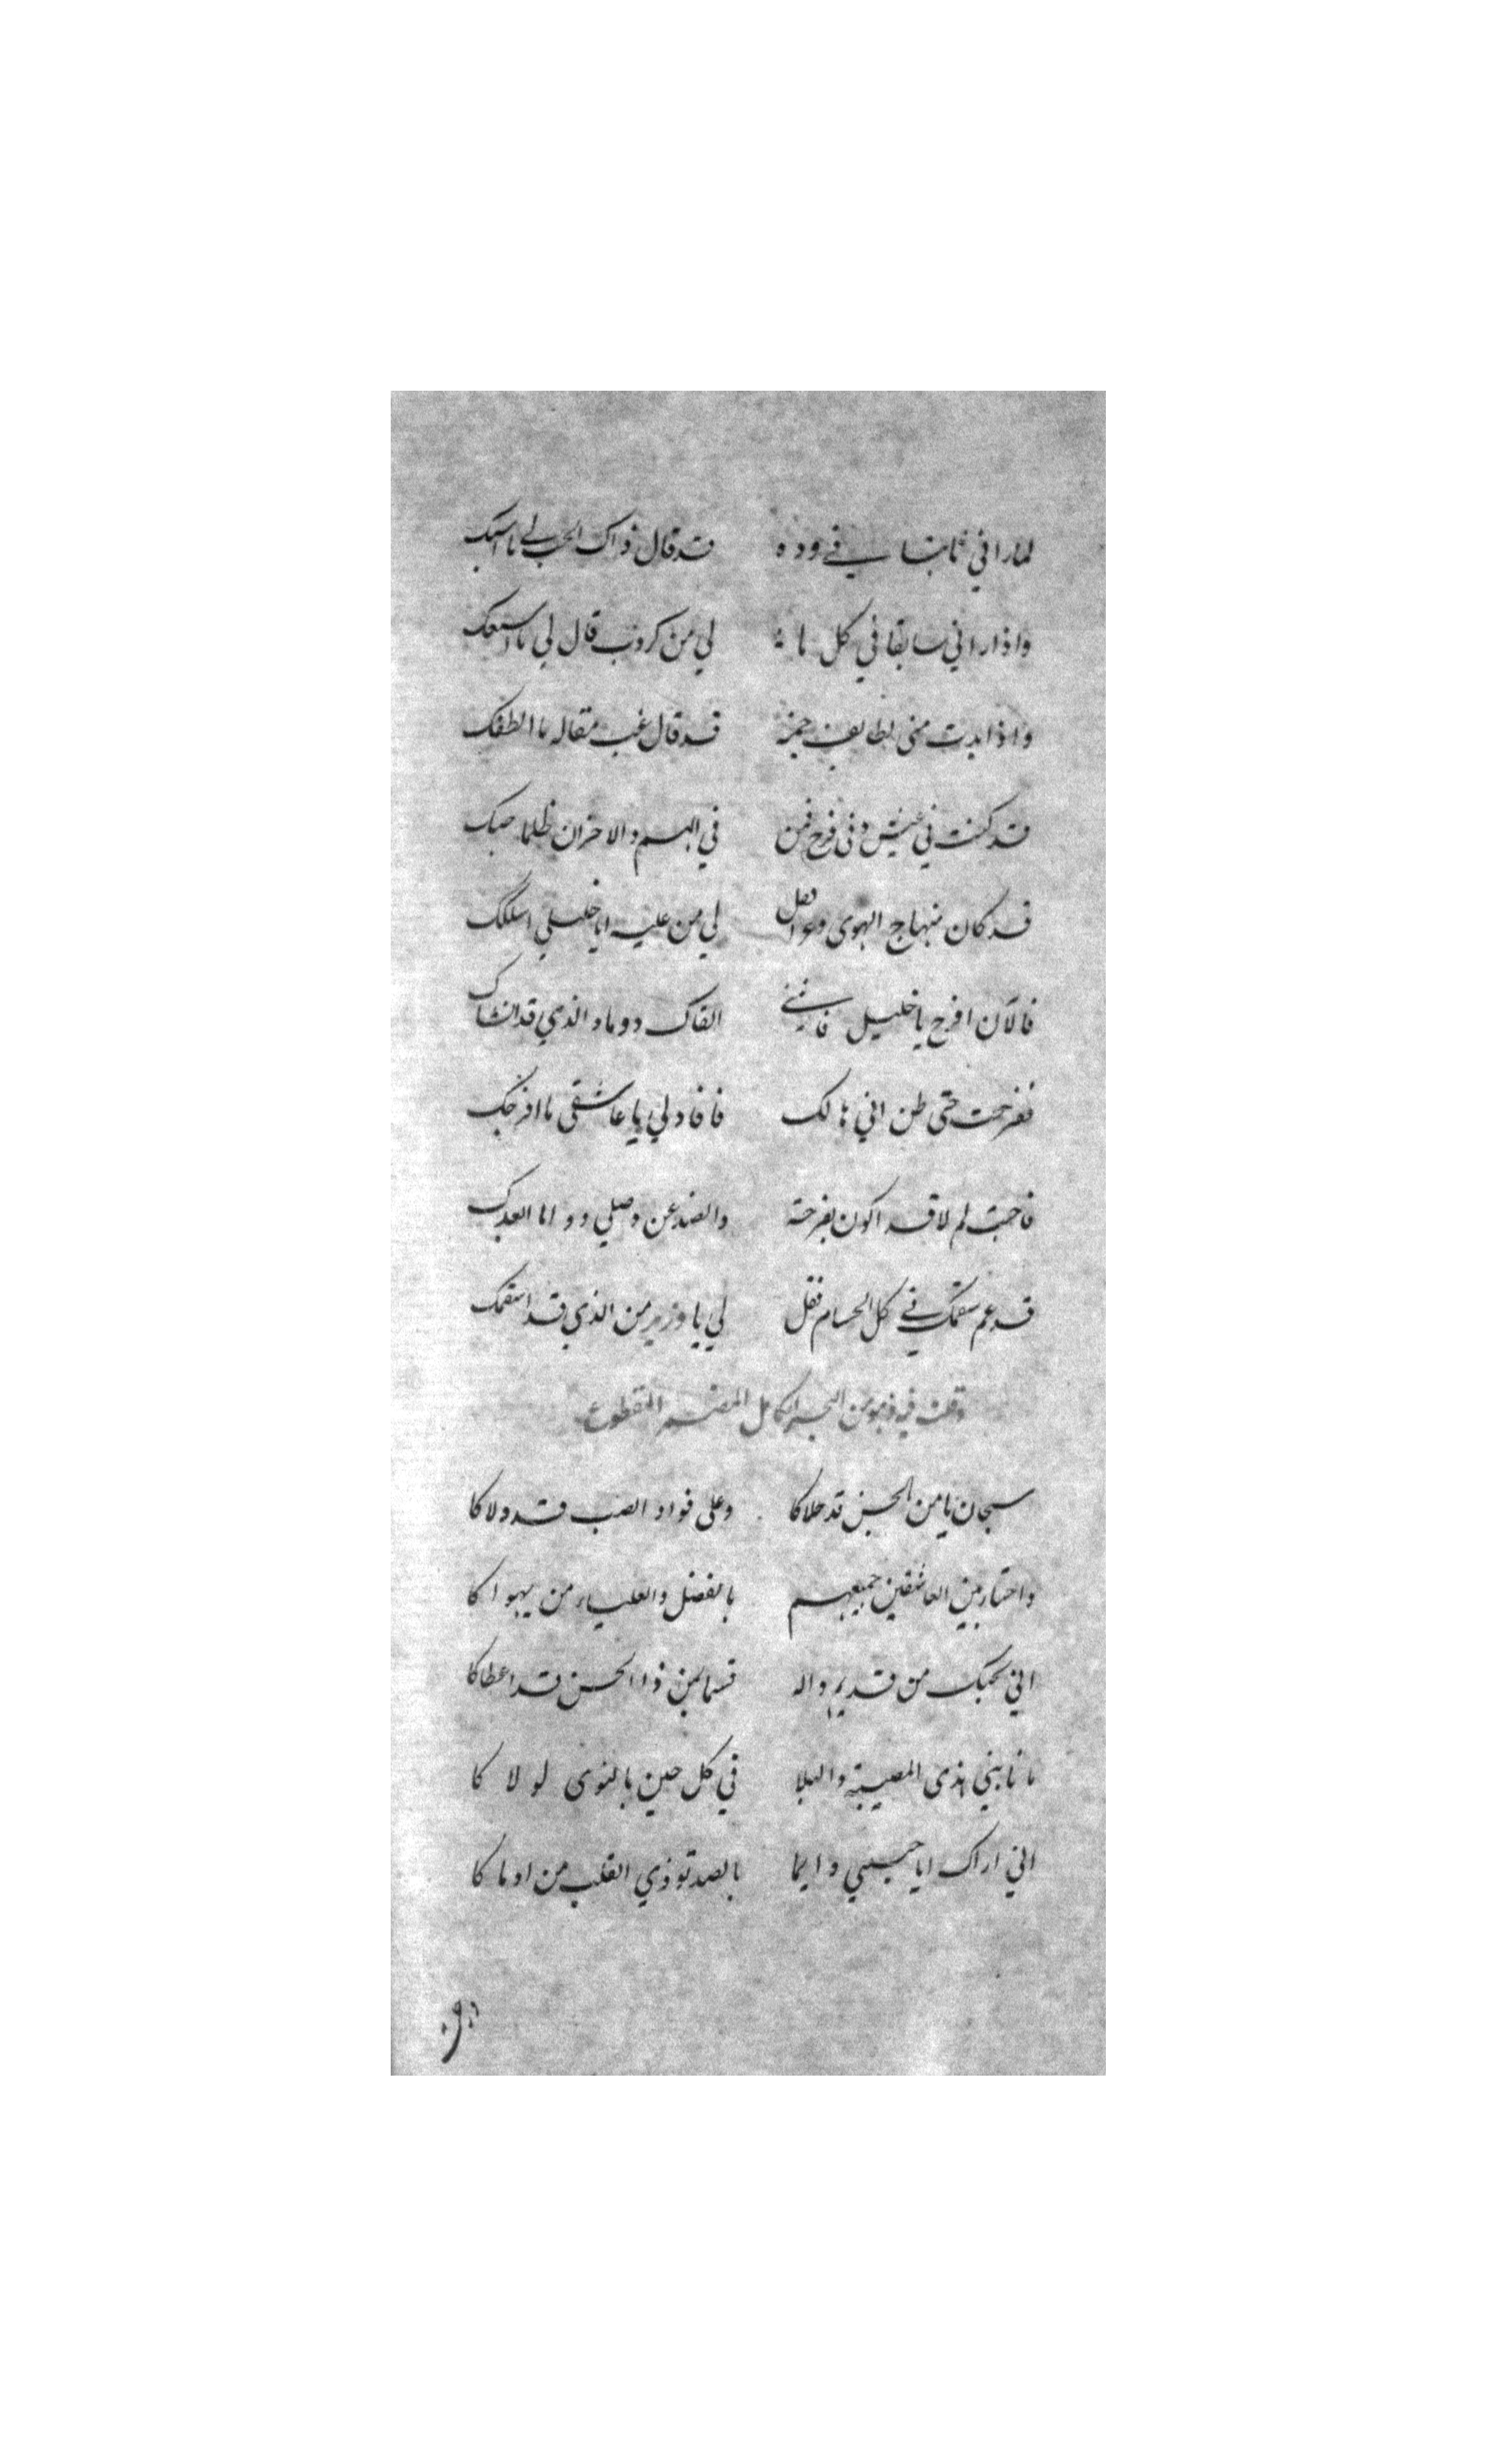 لما راني ثابتا في وده قد قال ذاك الحب لي ما اثبتك
واذا راني سابقا في كل ما لي من كروب قال لي ما اسبقك
واذا ابدت مني لطايف جمة قد قال غب مقاله ما الطفك
قد كنت في عيش وفي فرح فمن في الهم والاحزان ظلما صبك
قد كان منهاج الهوى وعرا فقل لي من عليه ايا خليلي اسلكك
فالآن افرح يا خليل فانني القاك دوما والذي قد انشاك
ففرحت حتى ظن اني هالك فافاد لي يا عاشقي ما افرحك
فاجبت لم لا قد اكون بفرحة والصد عن وصلي دواما ابعدك
قد عم سقمك في كل الجسام فقل لي يا وزير من الذي قد اسقمك
وقلت فيه وهو من البحر الكامل المضمر المقطوع
سبحان يا من الحسن قد حلاكا وعلى فواد الصب قد ولاكا
واختار بين العاشقين جميعهم بالفضل والعلياء من يهواكا
اني بحبك من قديم واله قسما بمن ذا الحسن قد اعطاكا
ما نابني هذى المصيبة والبلا في كل حين بالنوى لولاكا
اني اراك ايا حبيبي دايما بالصد توذي القلب من